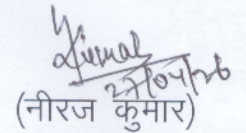 27/04/26
(नीरज कुमार)